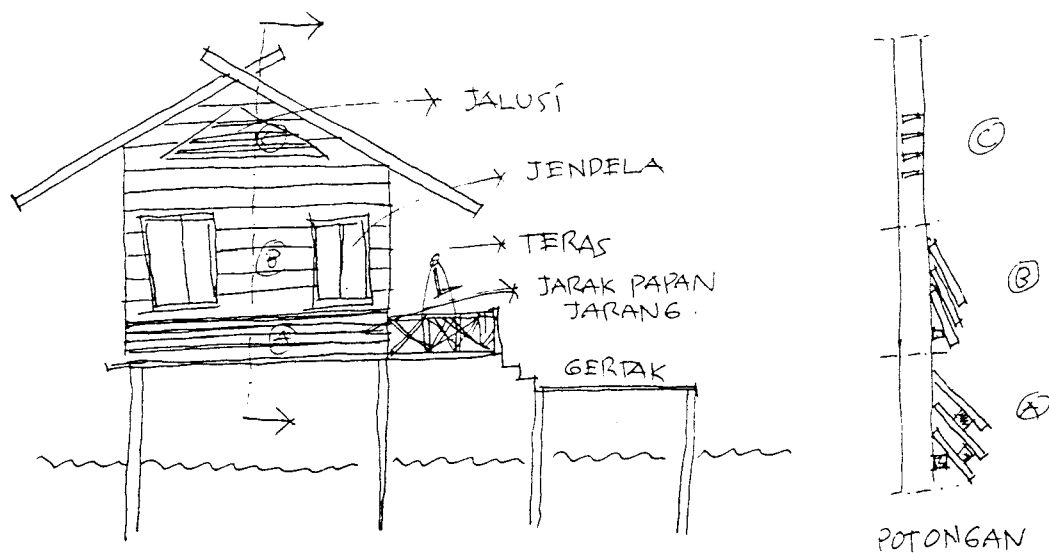 JALUSI
JENDELA
TERAS
JARAK PAPAN
JARANG.
GERTAK
C
B
A
C
B
A
POTONGAN